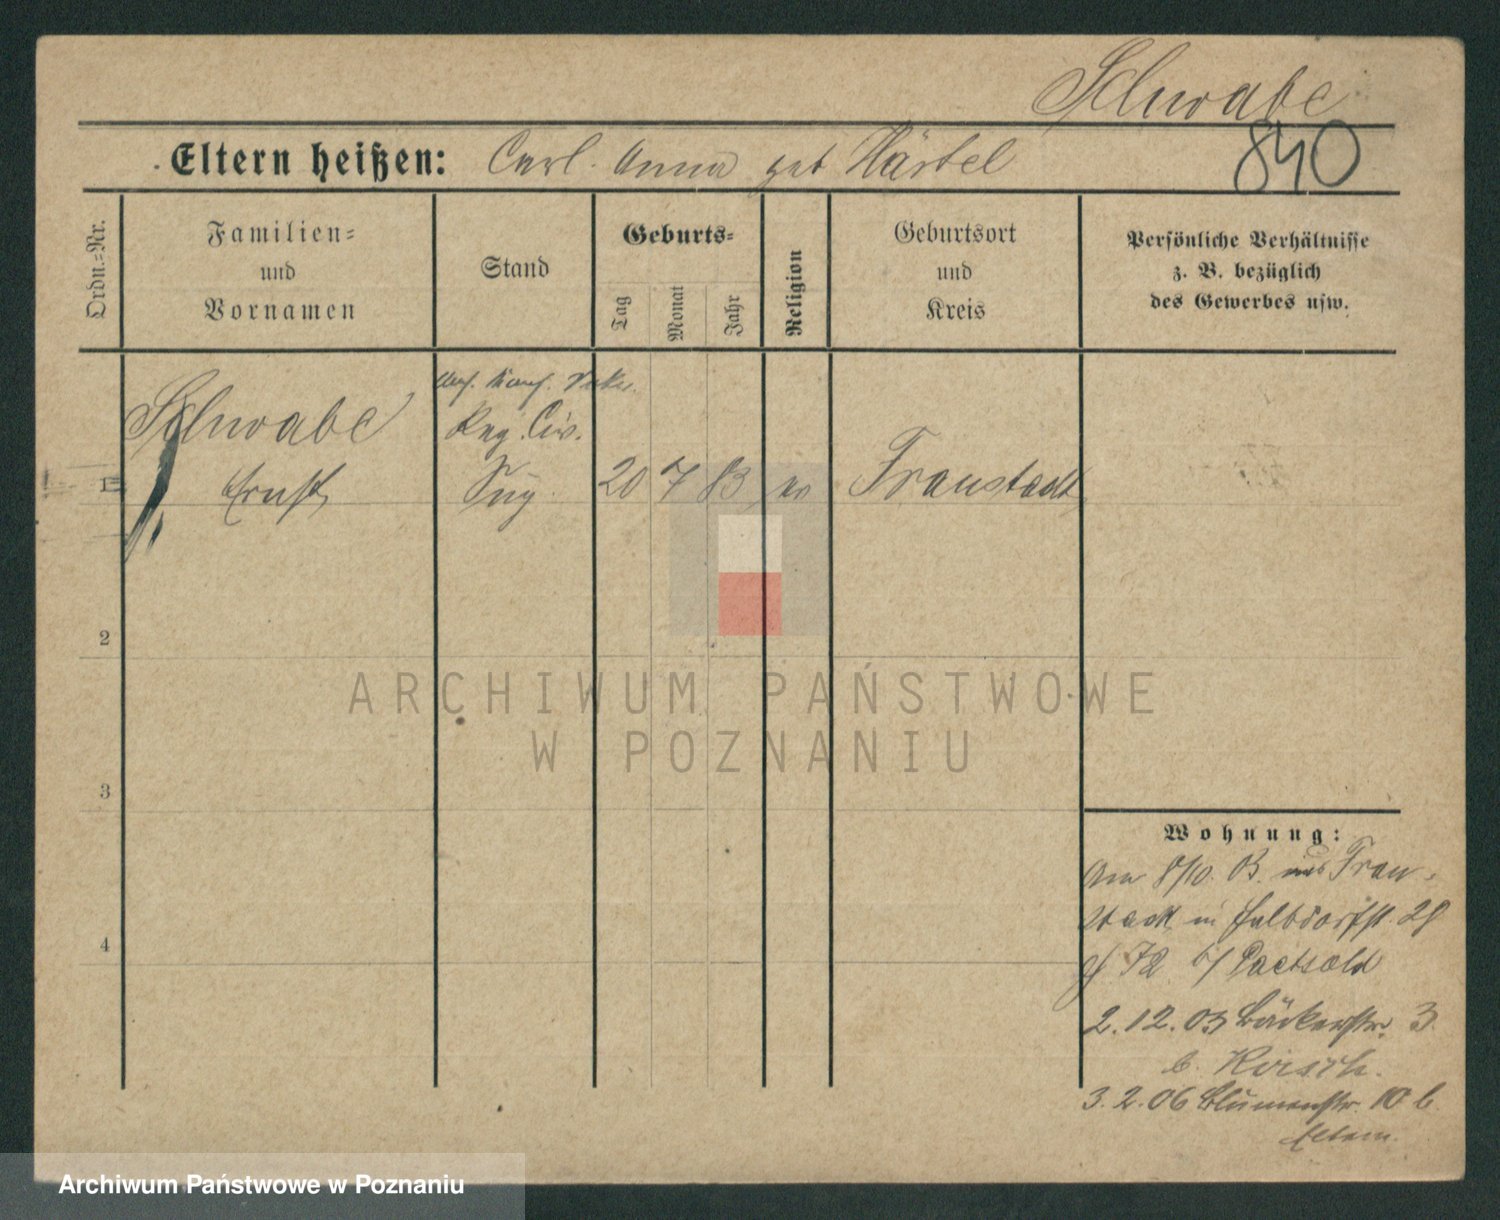 Schwabe
840
Eltern heißen: Carl. Anna geb Härtel
Ordn.=Nr.
Familien=
und
Vornamen
Stand
Geburts=
Tag
Monat
Jahr
Religion
Geburtsort
und
Kreis
Persönliche Verhältnisse
z. B. bezüglich
des Gewerbes usw.
Schwabe
Reg. Civ.
1 Ernst Sup. 20 7 83 ev Fraustadt
2
ARCHIWUM PAŃSTWOWE
W POZNANIU
3
4
Wohnung:
Am 8/10. 03. aus Frau-
stadt in Halbdorfstr. 28
72 b/ Paetzold
2.12.03 Bäckerstr. 3
b. Hirsch.
3.2.06 Blumenstr. 10 b.
Eltern.
Archiwum Państwowe w Poznaniu